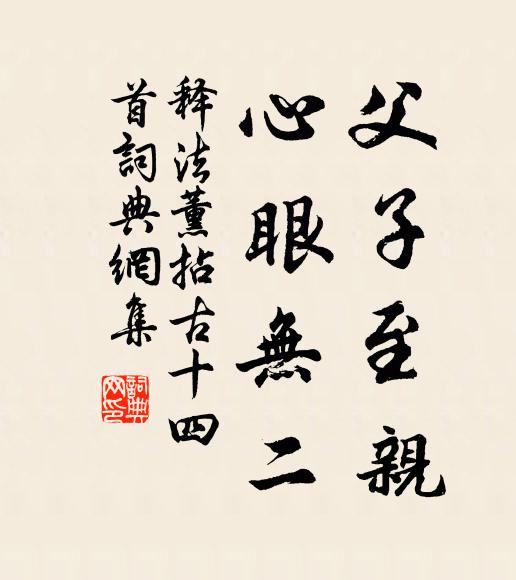 父子至親
心眼無二
释法薰拈古十四
首詞典網集
詞典网印